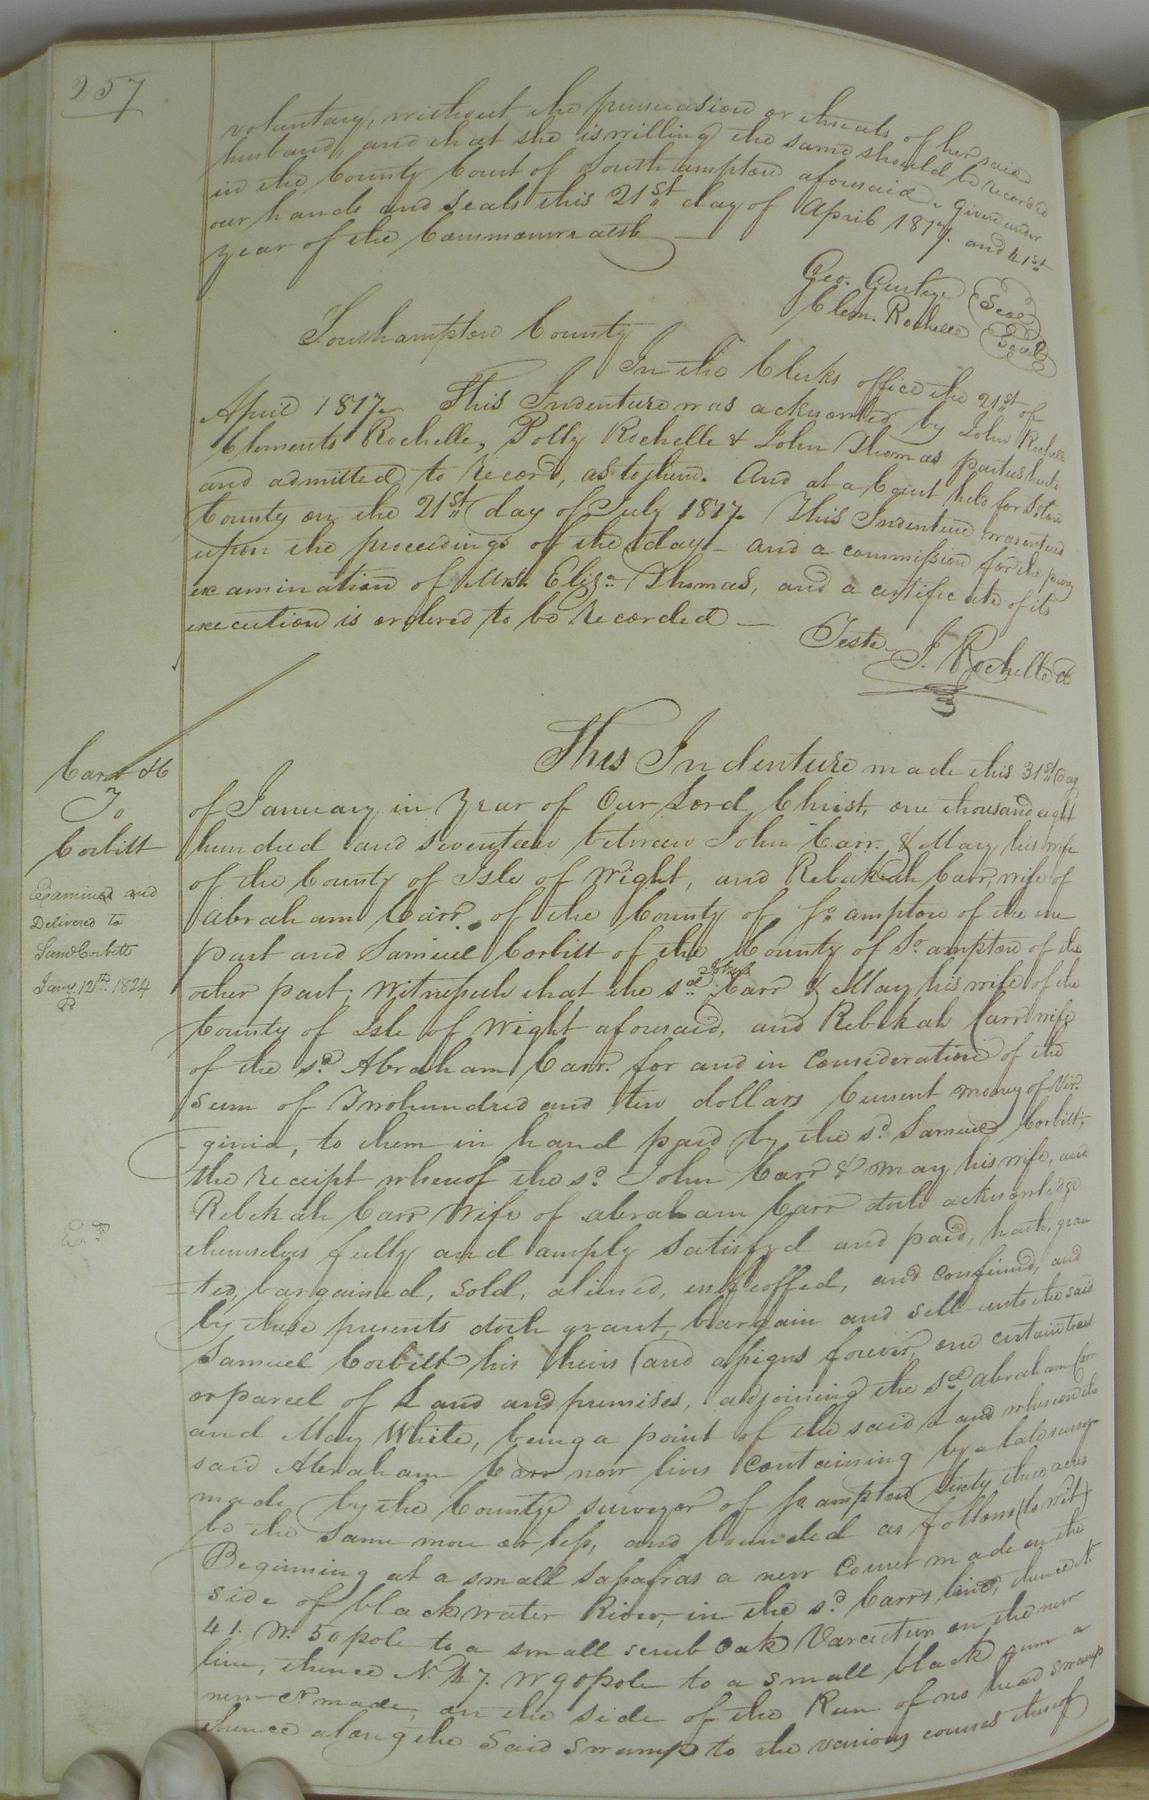 257
voluntary, without the persuasion or threats of her said
husband, and that she is willing the same should be recorded
in the County Court of Southampton aforesaid. Given under
our hands and seals this 21st day of April 1817. and 41st
year of the Commonwealth
Geo. Gurley (Seal)
Clem. Rochelle (Seal)
Southampton County
In the Clerks office the 21st of
April 1817. This Indenture was acknowled by John Rochelle
Clements Rochelle, Polly Rochelle & John Thomas parties hereto
and admitted to record, as to them. And at a Court held for So'ton
County on the 21st day of July 1817. This Indenture was entered
upon the proceedings of the day - and a commission for the privy
examination of Mrs. Eliza Thomas, and a certificate of its
execution is ordered to be recorded
Teste. J. Rochelle Ct
Carr &c
To
Corbitt
Examined and
Delivered to
Saml Corbitt
Jany. 12th. 1824
This Indenture made this 31st day
of January in Year of Our Lord Christ, one thousand eight
hundred and seventeen between John Carr & Mary his wife
of the County of Isle of Wight, and Rebekah Carr, wife of
Abraham Carr of the County of So ampton of the one
part and Samuel Corbitt of the County of So ampton of the
other part; Witnesseth that the sd John Carr & Mary his wife of the
County of Isle of Wight aforesaid, and Rebekah Carr wife
of the sd Abraham Carr. for and in Consideration of the
sum of Two hundred and ten dollars Current money of Vir-
-ginia, to them in hand paid by the sd Samuel Corbitt,
the receipt whereof the sd John Carr & Mary his wife, and
Rebekah Carr Wife of abraham Carr doth acknowledge
themselves fully and amply Satisfyd and paid, hath, gran
-ted, bargained, sold, aliened, enfeoffed, and confirmed, and
by these presents doth grant, bargain and sell unto the said
Samuel Corbitt his heirs and assigns forever, one certain tract
or parcel of Land and premises, adjoining the sd Abraham Carr
and Mary White, being a point of the said Land whereon the
said Abraham Carr now lives Containing by a late survey
made by the County surveyor of So ampton Sixty three acres
be the same more or less, and bounded as follows (to wit)
Beginning at a small Sasafras a new Corner made on the
side of blackwater River, in the sd Carrs line, thence N.
41. W. 50 pole to a small scrub Oak Varcuteen on the new
line, thence N. 47. W 90 pole to a small black gum a
new Cr made, on the side of the Run of no head swamp
thence along the Said Swamp to the various courses thereof